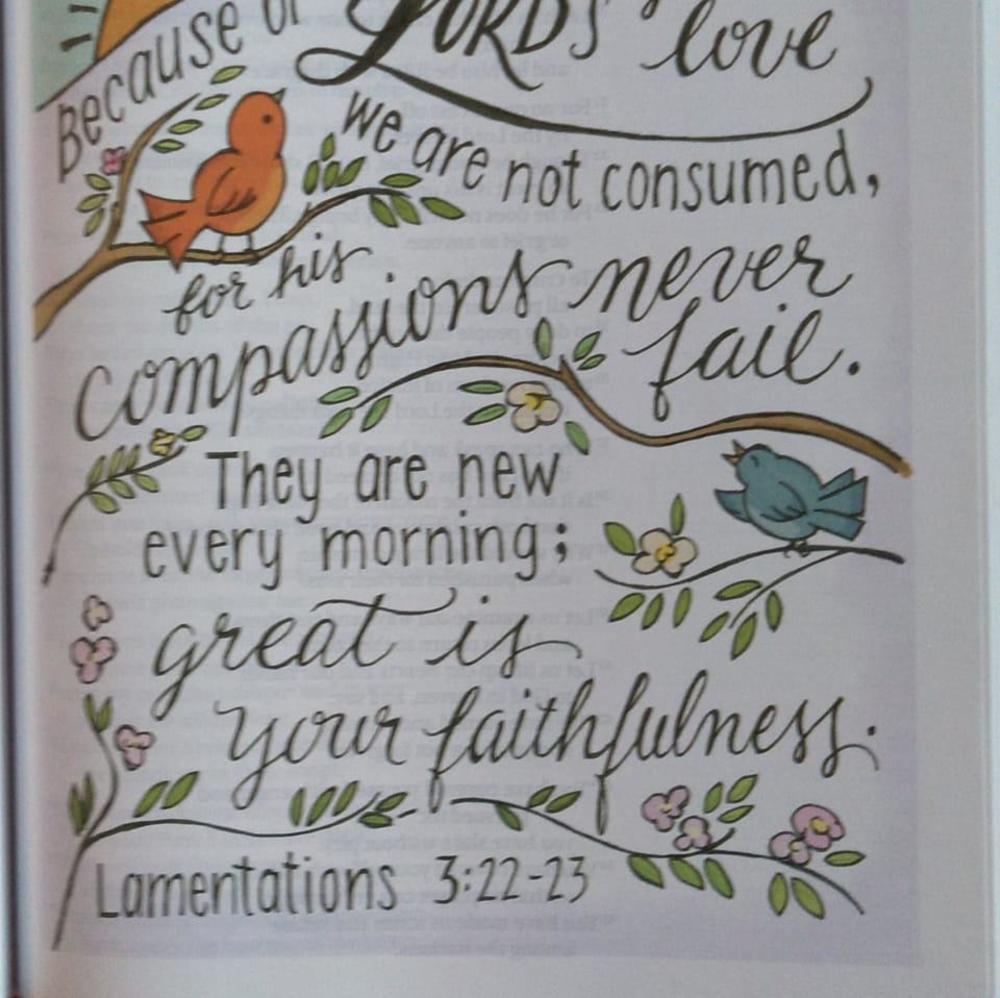 Because of
LORD'S
love
we are not consumed,
for his
compassions never
fail.
They are new
every morning;
great is
your faithfulness.
Lamentations 3:22-23